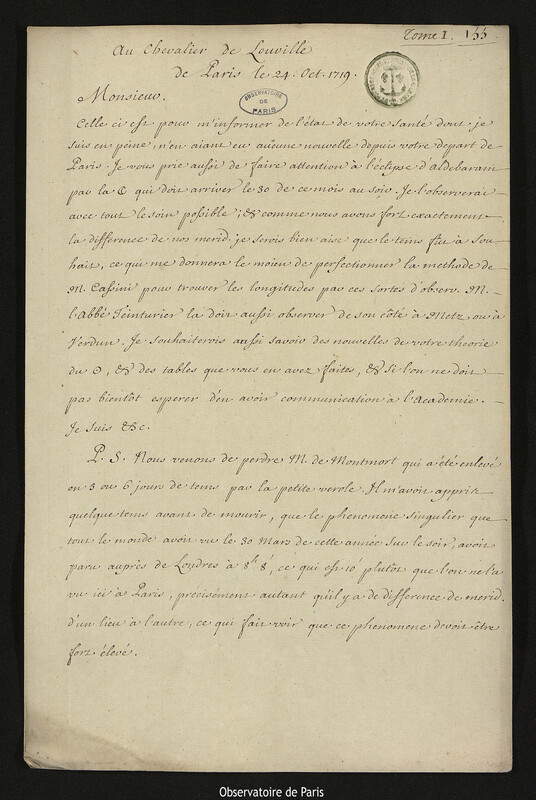 Tome I. 155.
Au Chevalier de Louville
de Paris le 24. Oct. 1719.
OBSERVATOIRE
DE
PARIS
Monsieur.
Celle ci est pour m'informer de l'état de votre santé dont je
suis en peine, n'en aiant eu aucune nouvelle depuis votre depart de
Paris. Je vous prie aussi de faire attention à l'éclipse d'Aldebaram
par la ☾ qui doit arriver le 30 de ce mois au soir. Je l'observerai
avec tout le soin possible; & comme nous avons fort exactement
la difference de nos merid. je serois bien aise que le tems fut à sou-
hait, ce qui me donnera le moien de perfectionner la methode de
M. Cassini pour trouver les longitudes par ces sortes d'observ. M.
l'abbé Teinturier la doit aussi observer de son côté à Metz ou à
Verdun. Je souhaiterois aussi savoir des nouvelles de votre theorie
du ☉, & des tables que vous en avez faites, & si l'on ne doit
pas bientôt esperer d'en avoir communication à l'Academie.
Je suis &c.
P. S. Nous venons de perdre M. de Montmort qui a été enlevé
en 5 ou 6 jours de tems par la petite verole. Il m'avoit appris
quelque tems avant de mourir, que le phenomene singulier que
tout le monde avoit vu le 30 Mars de cette année sur le soir, avoit
paru auprès de Londres à 8h 8', ce qui est 10' plutôt que l'on ne l'a
vu ici à Paris, précisément autant qu'il y a de difference de merid.
d'un lieu à l'autre, ce qui fait voir que ce phenomene devoit être
fort élevé.
Observatoire de Paris